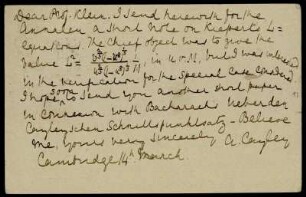 Dear Prof. Klein, I send herewith for the
Annalen a short note on Kiepert's L-
equations. The chief object was to give the
value L = in 16 π. 11, but I was interested
in the verification for the special case considered
I hope soon to send you another short paper
in connexion with Bacharach's Ueber den
Cayleyschen Schnittpunktsatz - Believe
me, yours very sincerely A. Cayley
Cambridge 14th March